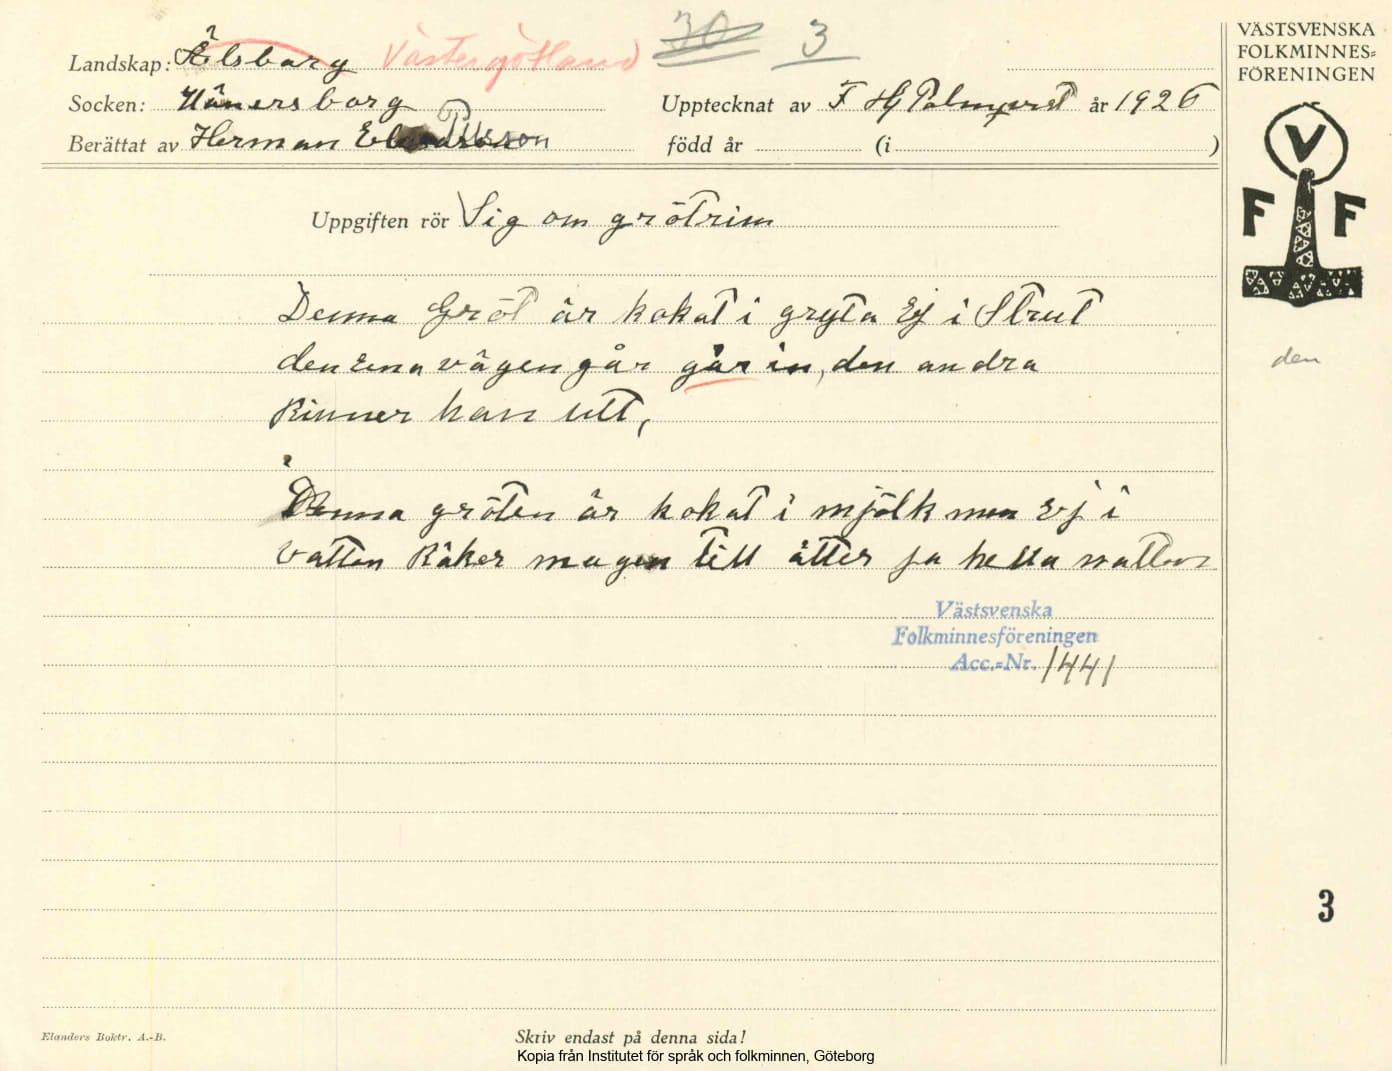 30 3
Landskap: Älsborg Västergötland
Socken: Vänersborg
Berättat av Herman Pettersson
Upptecknat av F Hj Palmqvist år 1926
född år (i )
VÄSTSVENSKA
FOLKMINNES=
FÖRENINGEN
V
F F
Uppgiften rör Sig om grötrim
Denna Gröt är kokat i gryta Ej i Strut
den Ena vägen går går in, den andra
den
Rinner han utt,
Denna gröten är kokat i mjölk men Ej i
Vatten Räker magen till åtter på hella natten
Västsvenska
Folkminnesföreningen
Acc.=Nr. 1441
3
Elanders Boktr. A.-B.
Skriv endast på denna sida!
Kopia från Institutet för språk och folkminnen, Göteborg